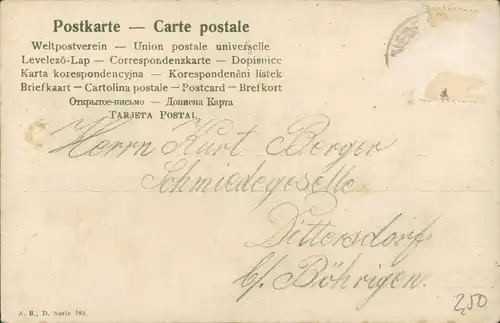 Postkarte — Carte postale
Weltpostverein — Union postale universelle
Levelező-Lap — Correspondenzkarte — Dopisnice
Karta korespondencyjna — Korespondenční lístek
Briefkaart — Cartolina postale — Postcard — Brefkort
Открытое-письмо — Дописна Карта
TARJETA POSTAL
Herrn Kurt Berger
Schmiedegeselle
Dittersdorf
b/ Böhrigen.
2,50
Serie